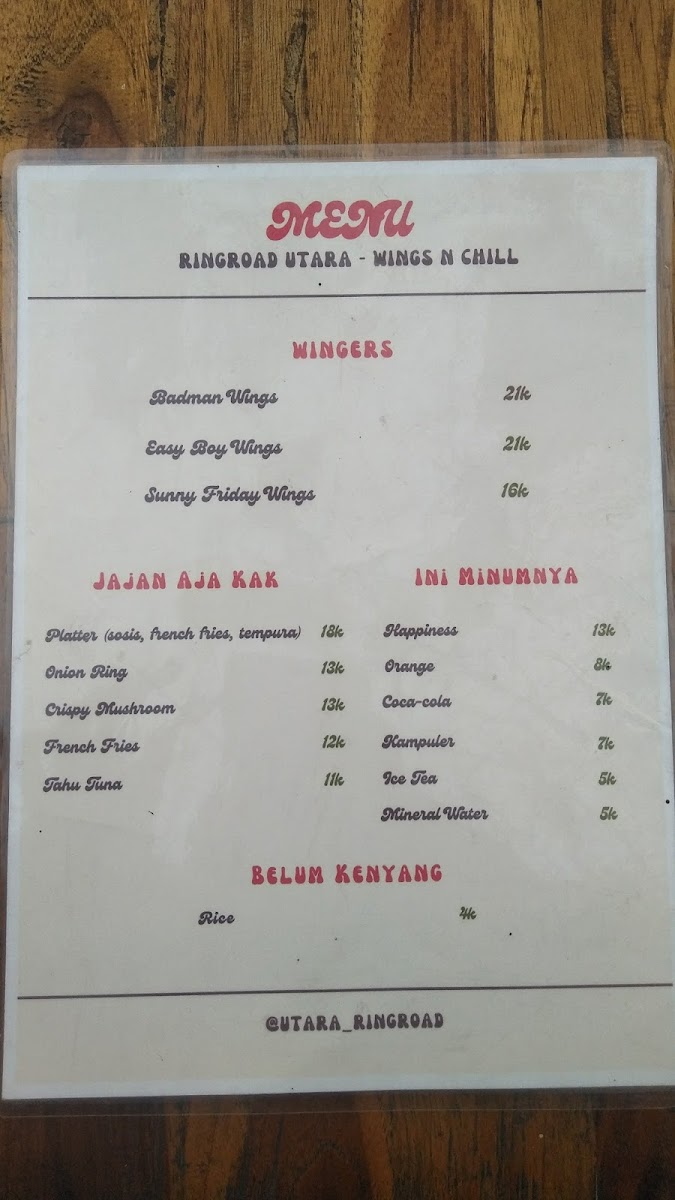 MENU
RINGROAD UTARA - WINGS N CHILL
WINGERS
Badman Wings 21k
Easy Boy Wings 21k
Sunny Friday Wings 16k
JAJAN AJA KAK
Platter (sosis, french fries, tempura) 18k
Onion Ring 13k
Crispy Mushroom 13k
French Fries 12k
Tahu Tuna 11k
INI MINUMNYA
Happiness 13k
Orange 8k
Coca-cola 7k
Kampuler 7k
Ice Tea 5k
Mineral Water 5k
BELUM KENYANG
Rice 4k
@UTARA_RINGROAD